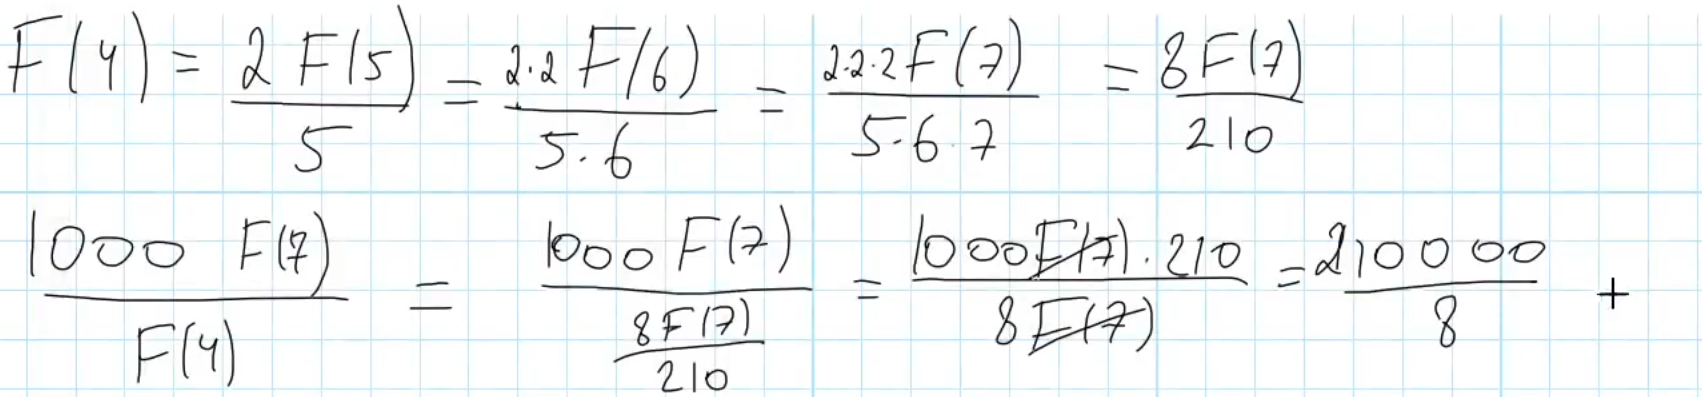 F(4) = 2F(5)/5 = 2·2F(6)/5·6 = 2·2·2F(7)/5·6·7 = 8F(7)/210
1000 F(7)/F(4) = 1000 F(7)/(8F(7)/210) = 1000F(7)·210/8F(7) = 210000/8